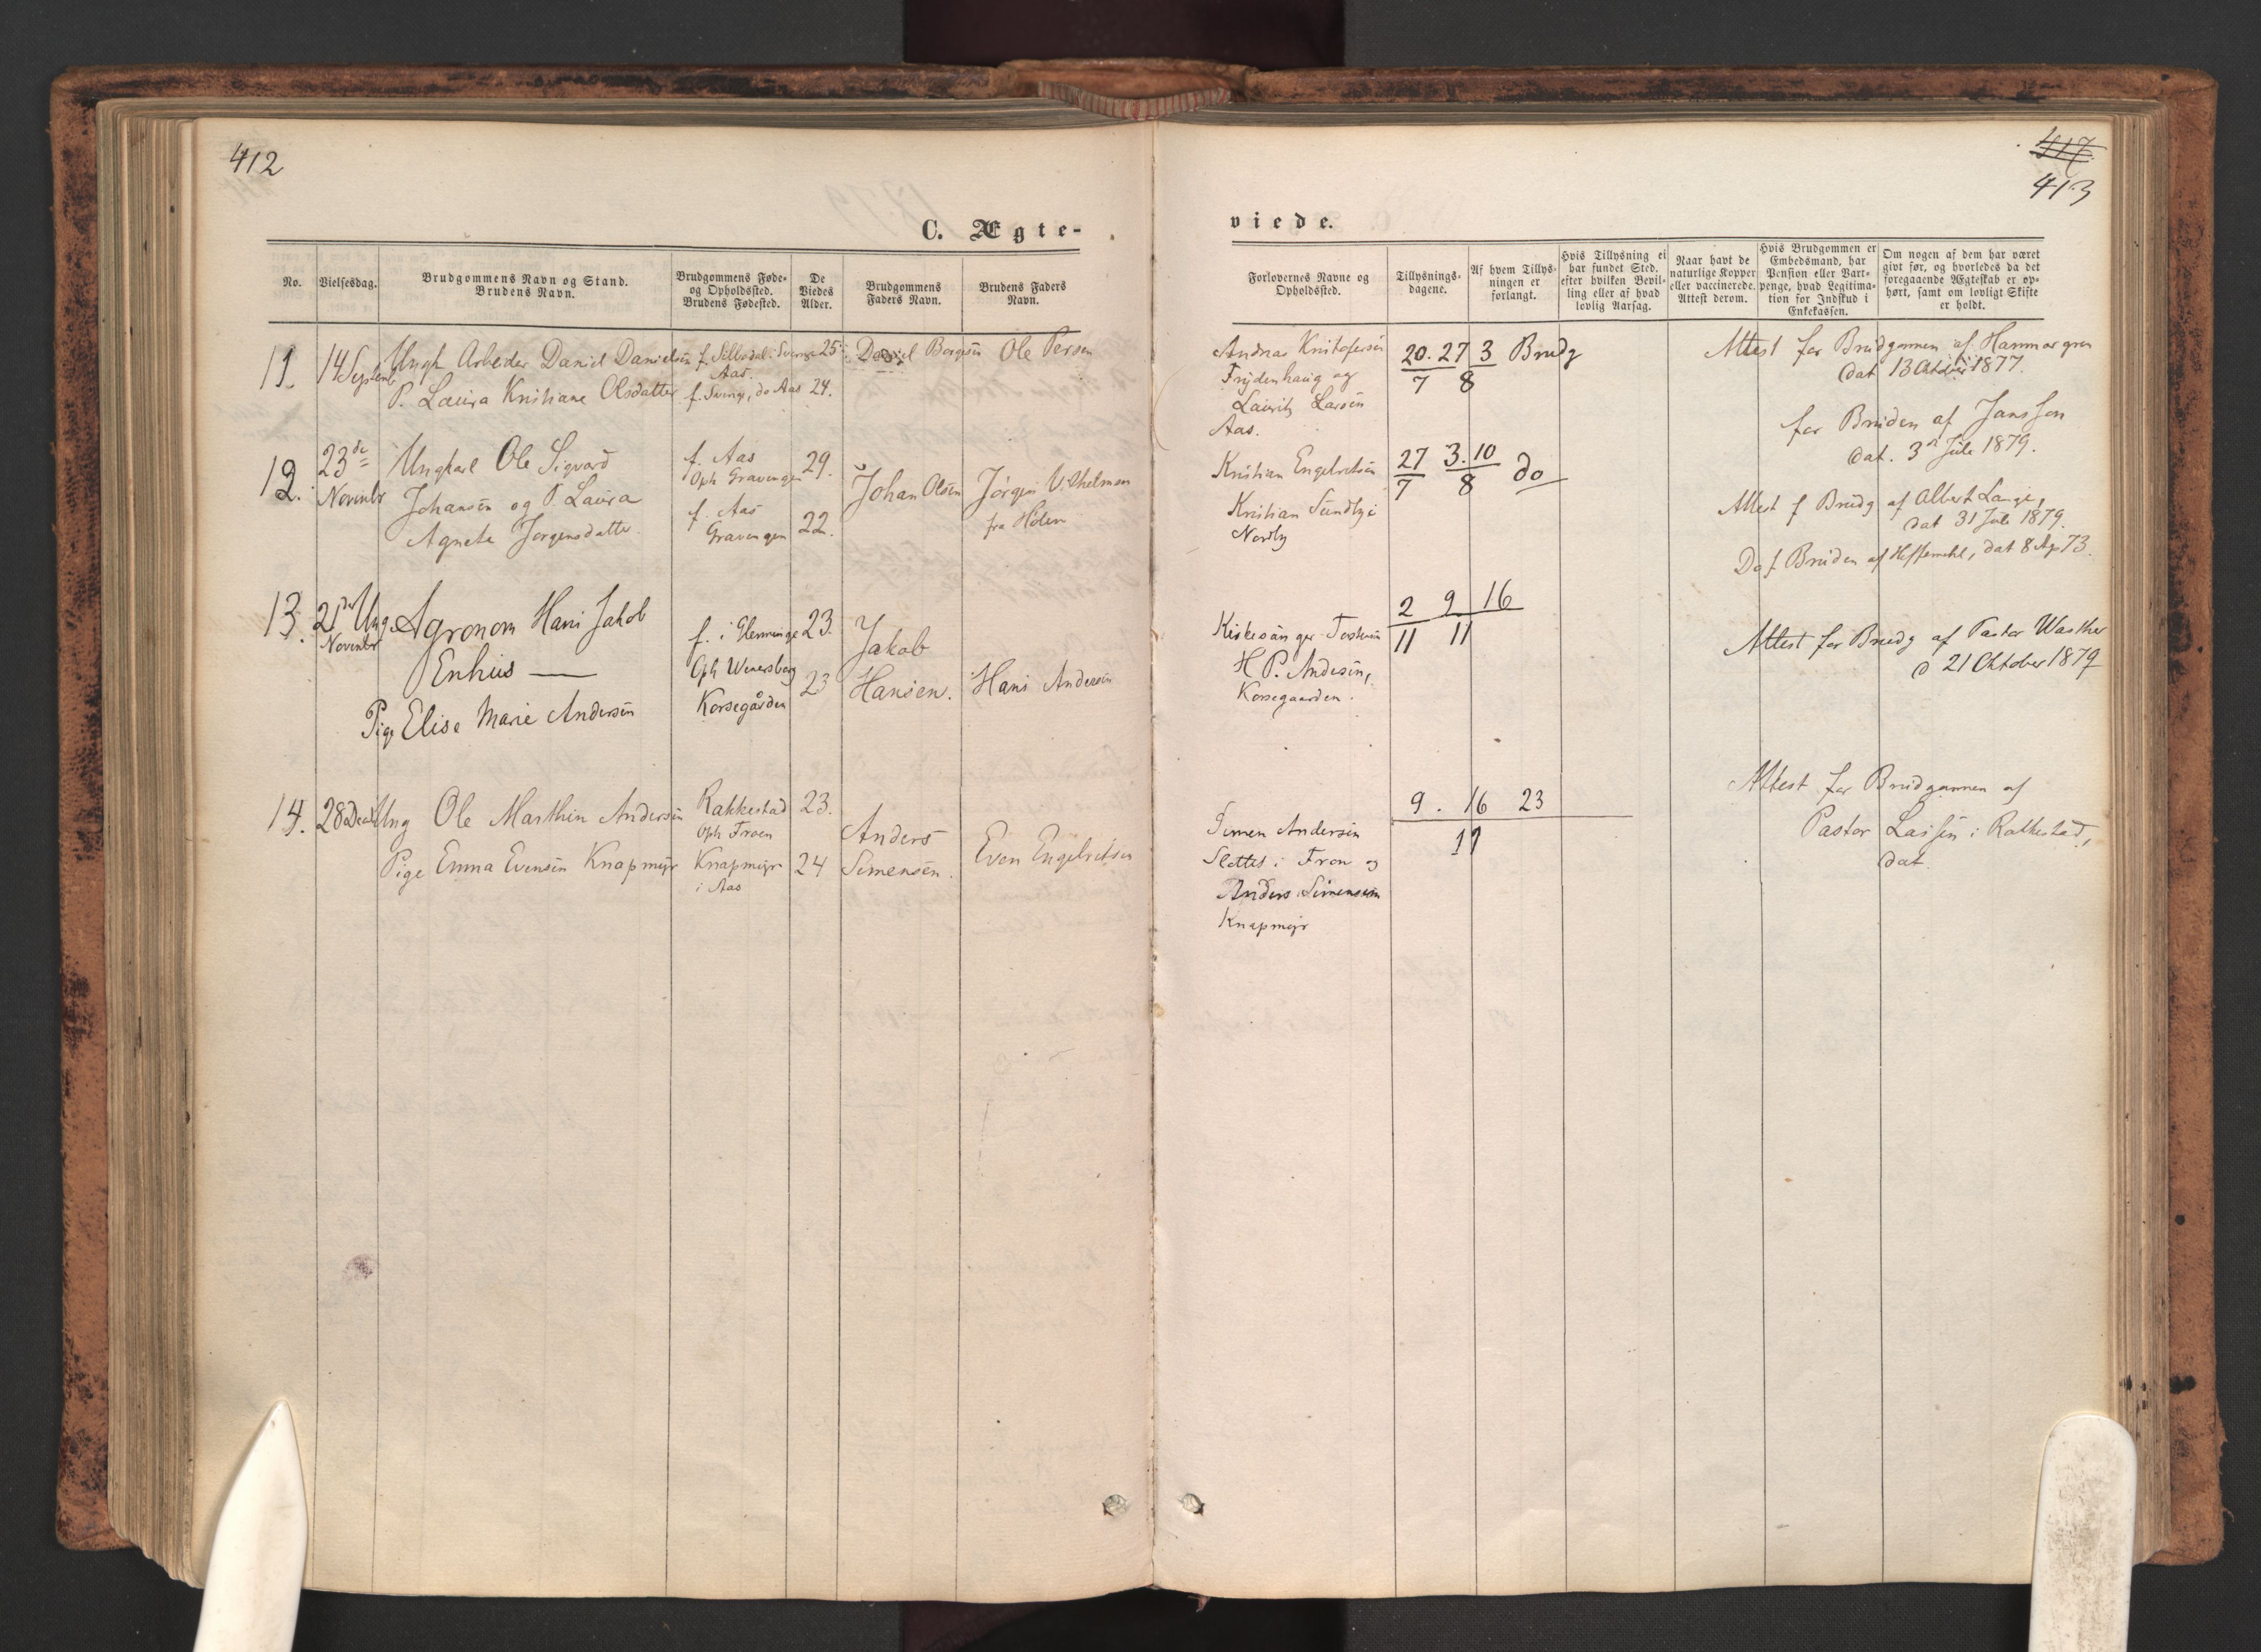 412
C. Ægte-
No.
Vielsesdag.
Brudgommens Navn og Stand.
Brudens Navn.
Brudgommens Føde-
og Opholdssted.
Brudens Fødested.
De
Viedes
Alder.
Brudgommens
Faders Navn.
Brudens Faders
Navn.
11. 14 Septemb Ungk Arbeder Daniel Danielsen f. Sverige 25 Daniel Ole Persen
Aas.
P. Laura Kristiane Olsdatter f. Sverige, do Aas 24.
12. 23de Novembr Ungkarl Ole Sigvard f. Aas 29.
Oph Gravengen
Johansen og P. Laura Johan Olsen Jørgen Vilhelmsen
f. Aas
Agnete Jørgensdatter Gravengen 22. fra Holen
13. 21de Novembr Ung. Agronom Hans Jakob f. i Glemminge 23. Jakob
Enhus — Oph Wenersborg
23 Hansen. Hans Andersen
Pige Elise Marie Andersen Korsegården
14. 28 Decb Ung Ole Marthin Andersen Rakkestad 23.
Oph Froen Anders
Pige Emma Evensen Knapmyr Knapmyr 24 Simensen. Even Engebretsen
i Aas
417
413
viede.
Forlovernes Navne og
Opholdssted.
Tillysnings-
dagene.
Af hvem Tillys-
ningen er
forlangt.
Hvis Tillysning ei
har fundet Sted.
efter hvilken Bevil-
ling eller af hvad
lovlig Aarsag.
Naar havt de
naturlige Kopper
eller vaccinerede.
Attest derom.
Hvis Brudgommen er
Embedsmand, har
Pension eller Vart-
penge, hvad Legitima-
tion for Indskud i
Enkekassen.
Om nogen af dem har været
givt før, og hvorledes da det
foregaaende Ægteskab er op-
hørt, samt om lovligt Skifte
er holdt.
Andreas Kristofersen 20. 27 3 Brudg Attest for Brudgommen af Hammargren
Frydenhaug og 7 8 dat 13 Oktober 1877.
Lauritz Larsen
Aas.
for Bruden af Jansson
dat. 3 Juli 1879.
Kristian Engebretsen 27 3. 10 do
7 8
Kristian Sundby i
Nordby
Attest f Brudg af Albert Lange,
dat 31 Juli 1879.
Do f. Bruden af Heftermehl, dat 8 Ap 73.
2 9 16
11 11
Kirkesanger Torstensen
H P. Andersen,
Korsegaarden.
Attest for Brudg af Pastor Walther
d 21 Oktober 1879
9. 16 23
11
Simen Andersen
Slottet i Fron og
Anders Simensen
Knapmyr
Attest for Brudgommen af
Pastor Lassen i Rakkestad,
dat.